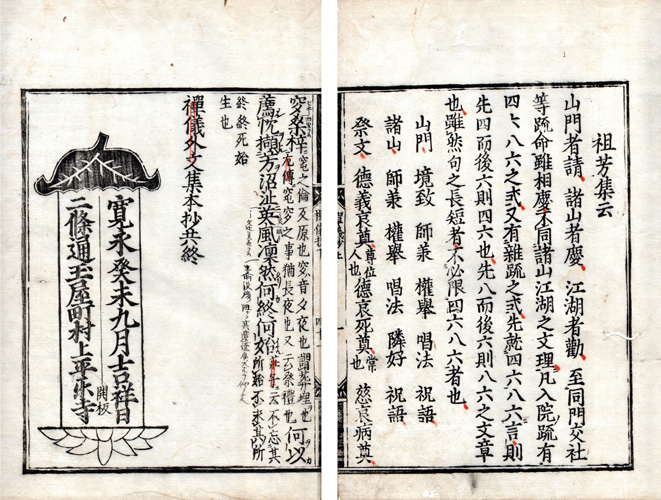 祖芳集云
山門者請 諸山者慶 江湖者勸 至同門交社
等疏命雖相慶 不同諸山江湖之文理 凡入院疏有
四六八六之式 又有雜疏之式 先就四六八六言則
先四而後六則四六也 先八而後六則八六之文章
也 雖然句之長短者不必限四六八六者也
山門 境致 師兼 權舉 唱法 祝語
諸山 師兼 權舉 唱法 隣好 祝語
祭文 德義哀奠 尊位人也 德哀死奠 常也 慈哀病奠
窀之倫及原也 穸音夕夜也 謂葬埋也 何以
左傳窀穸之事 猶長夜也 又云祭禮也
薦忱擷芳沼沚 英風凜然何終何始
終終死始
生也
禪儀外文集本抄共終
寛永癸未九月吉祥日
二條通玉屋町村上平樂寺
開板